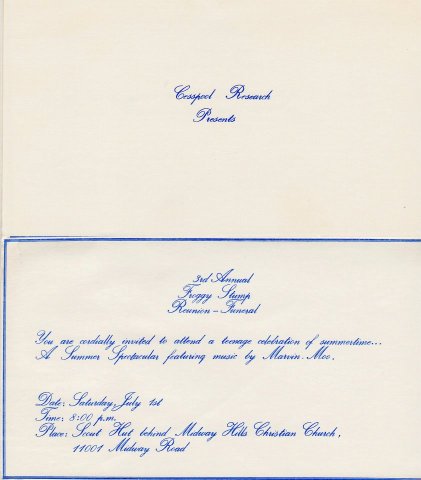 Cesspool Research
Presents
3rd Annual
Froggy Stump
Reunion - Funeral
You are cordially invited to attend a teenage celebration of summertime...
A Summer Spectacular featuring music by Marvin-Moo.
Date: Saturday, July 1st
Time: 8:00 p.m.
Place: Scout Hut behind Midway Hills Christian Church,
11001 Midway Road